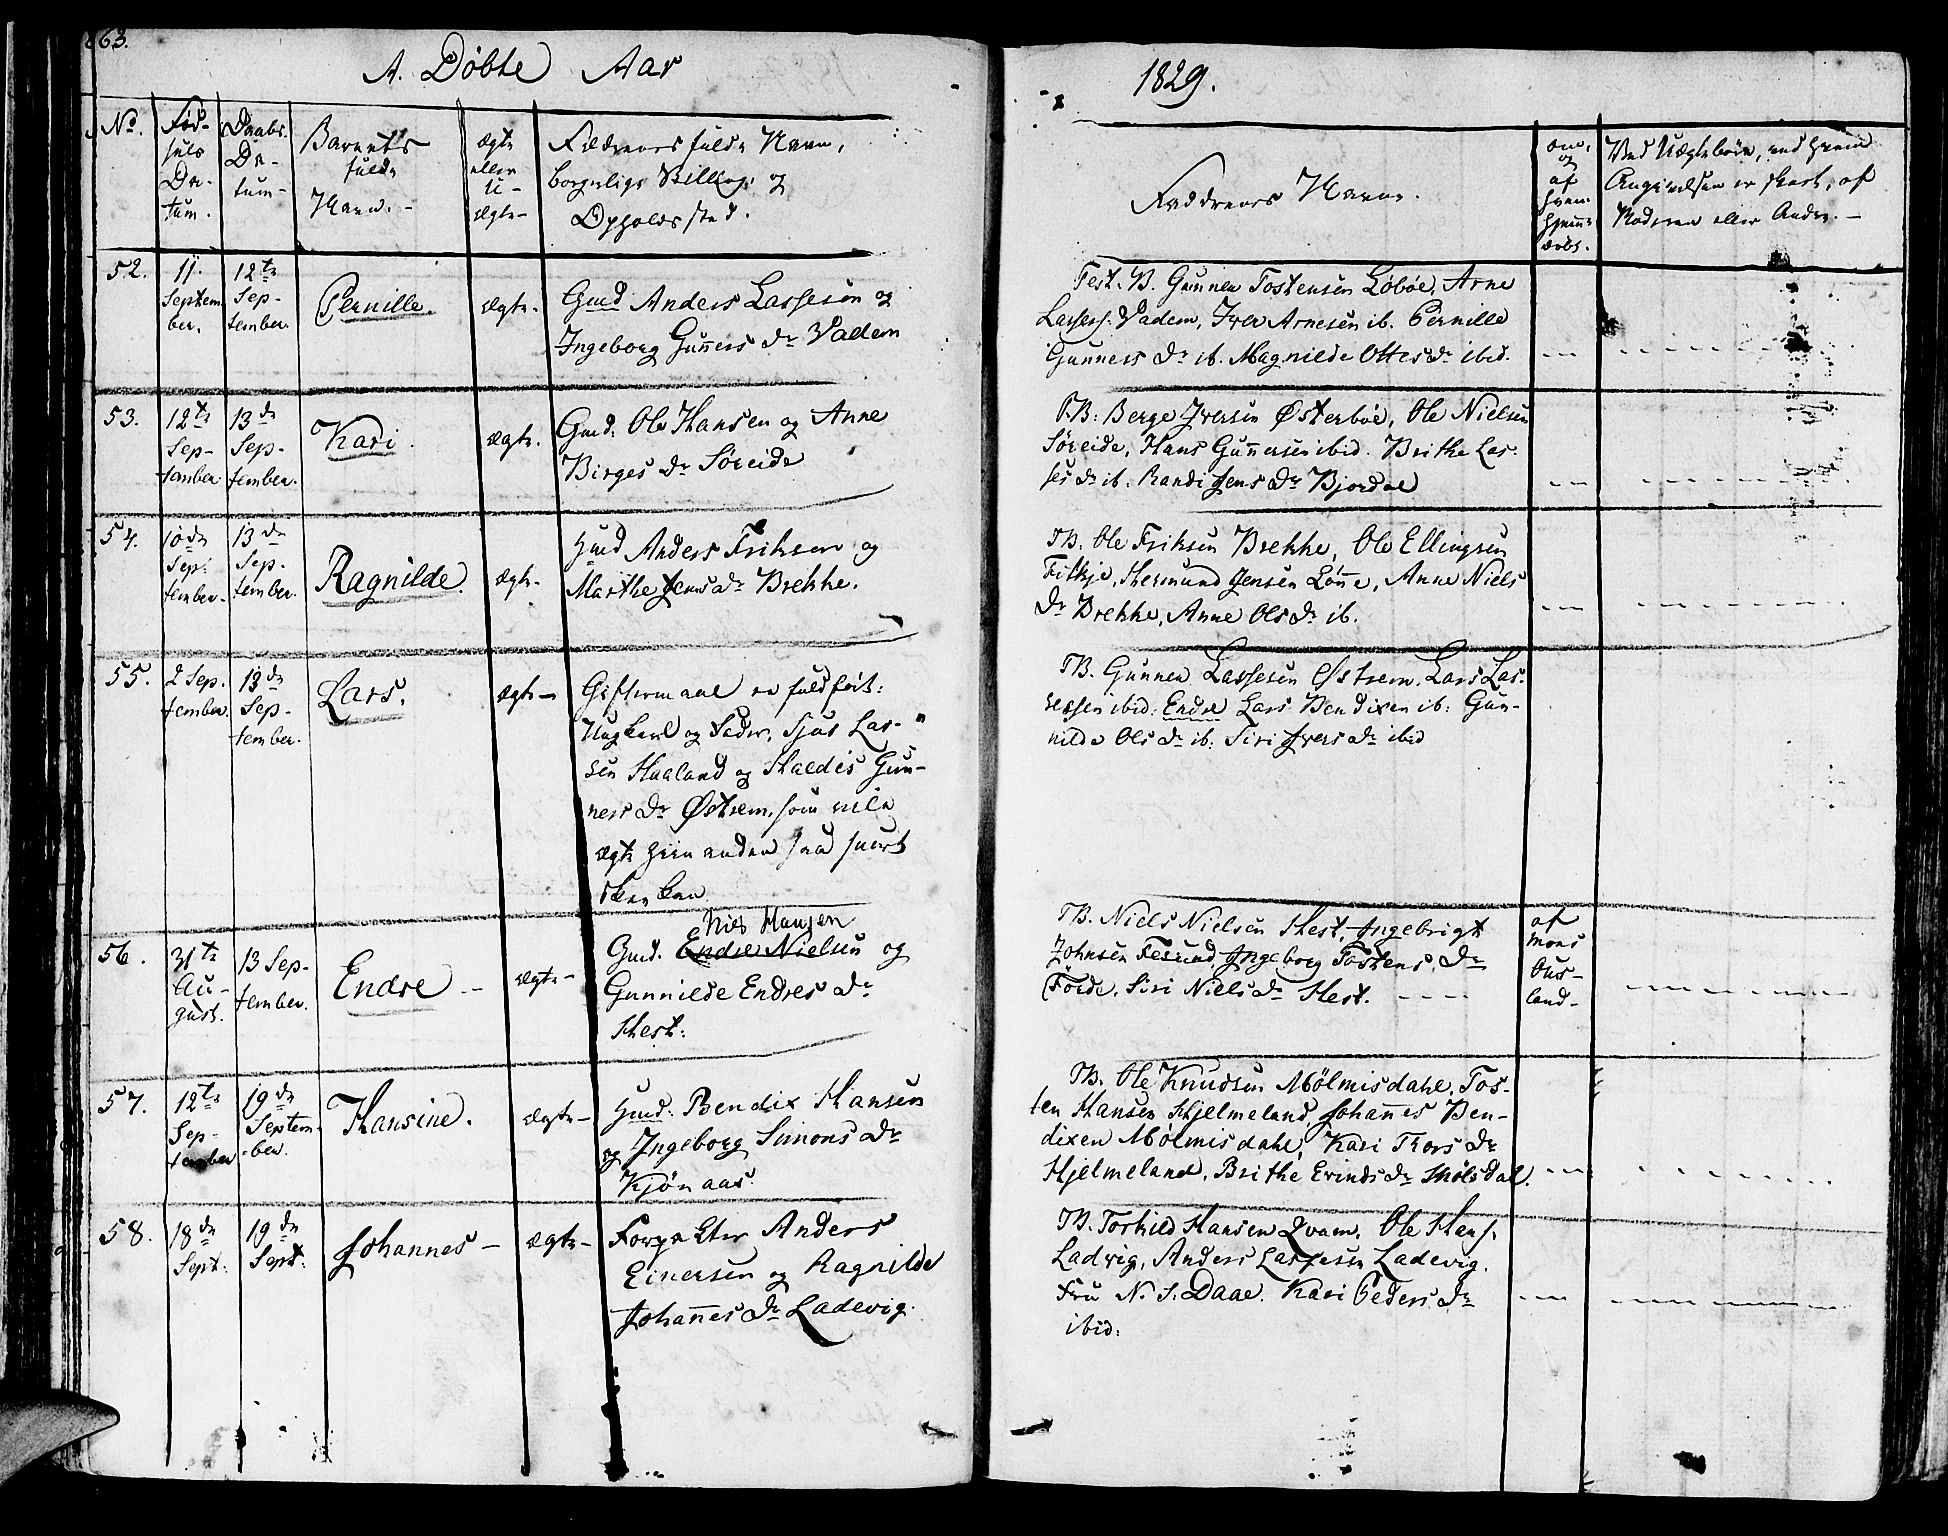 63.
A. Døbte Aar
1829.
No.
Fød-
sels
Da-
tum.
Daabs.
Da-
tum-
Barnets
fulde
Navn. -
ægte
eller
u-
ægte-
Forældrenes fulde Navn,
borgerlige Stilling og
Opholdssted.
Faddrenes Navne.
om,
og
af
hvem
hjemme
døbt.
Ved Uægtebørn, ved hvem
Angivelsen er skeet, af
Moderen eller Andre. -
52.
11.
Septem
ber.
12te
Sep-
tember.
Pernille.
ægte.
Gmd Anders Lassesøn og
Ingeborg Gunners Dr Vadem
Test. B. Gunner Tostensen Løbøe, Arne
Lasses. Vadem, Iver Arnesen ib. Pernille
Gunners Dr ib. Magnilde Ottes Dr ibid.
53.
12te
Sep-
tember
13de
Sep-
tember.
Kari.
ægte.
Gmd. Ole Hansen og Anne
Birges Dr Søreide
T.B: Berge Iversen Østerbøe, Ole Nielsen
Søreide, Hans Gunnersen ibid. Brithe Las-
ses Dr ib. Randi Jens Dr Bjordal
54.
10de
Sep-
tember.
13de
Sep-
tember.
Ragnilde.
ægte-
Hmd Anders Eriksen og
Marthe Jens Dr Brekke.
TB. Ole Eriksen Brekke, Ole Ellingsen
Jensen Lønne, Anne Niels
Dr Brekke, Anne Ols Dr ib.
55.
2 Sep-
tember.
13de
Sep-
tember.
Lars.
ægte-
Giftermaal er fuldført:
Ungkarl og Fader, Sjus Las-
sen Hualand og Haldis Gun-
ners Dr Østrem, som ville
ægte hinanden saa snart
skee kan
TB. Gunner Lassesen Østrem. Lars Las-
sesøn ibid: Endre Lars Bendixen ib: Gun-
nilde Ols Dr ib: Siri Ivers Dr ibid
56.
31te
Au-
gust.
13 Sep-
tember.
Endre -
ægte-
Niels Hansen
Gmd. Endre Nielsen og
Gunnilde Endres Dr
Hest:
TB. Niels Nielsen Hest, Ingebrigt
Johnsen Ingeborg Tostens Dr
Førde, Siri Niels Dr Hest.
af
Mons
Ous-
land-
57.
12te
Sep-
tember
19de
Septem-
-ber.
Hansine.
ægte-
Hmd. Bendix Hansen
og Ingeborg Simons Dr
Kjønaas.
TB. Ole Knudsen Mølmisdahl, Tos-
ten Hansen Hjelmeland, Johannes Ben-
dixen Mølmisdahl, Kari Thors Dr
Hjelmeland, Brithe Erinds Dr Mølsdal.
58.
18de
Sept:
19de
Sept:
Johannes -
ægte-
Forpakter Anders
Einersen og Ragnilde
Johannes Dr Ladevig.
TB. Torkild Hansen Qvam, Ole Hans.
Ladvig, Anders Lassesen Ladevig.
Fru N. S. Daae. Kari Peders Dr
ibid: